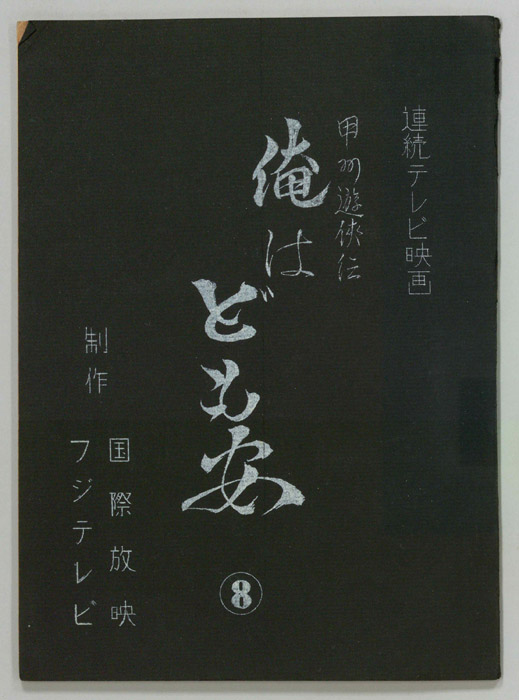 連続テレビ映画
甲州遊侠伝
俺は
ども安
⑧
制作
国際放映
フジテレビ